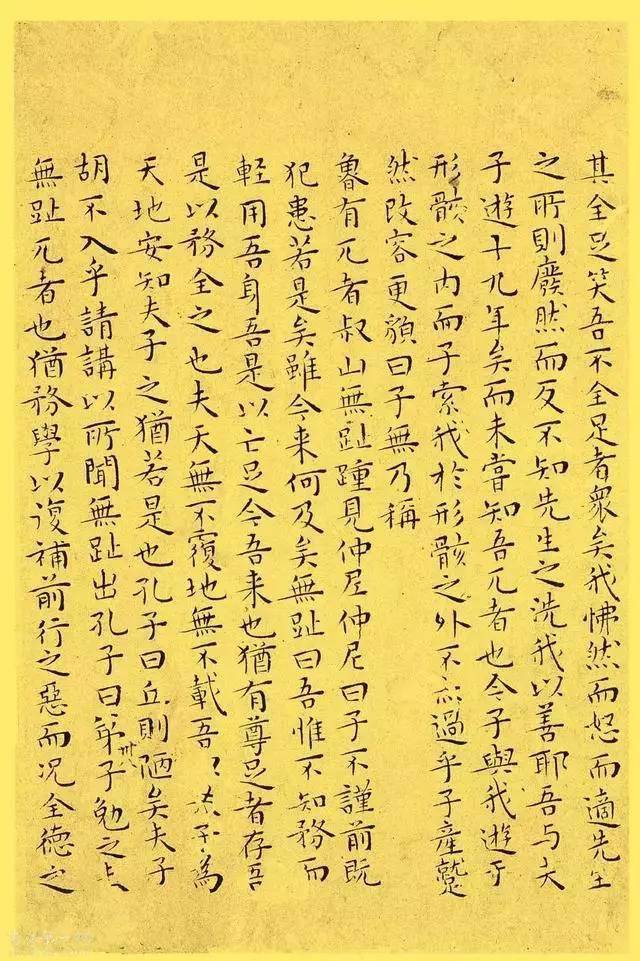 其全足笑吾不全足者衆矣我怫然而怒而適先生
之所則廢然而反不知先生之洗我以善耶吾与夫
子遊十九年矣而未嘗知吾兀者也今子與我遊乎
形骸之内而子索我於形骸之外不亦過乎子產蹵
然改容更㒵曰子無乃稱
魯有兀者叔山無趾踵見仲尼仲尼曰子不謹前既
犯患若是矣雖今来何及矣無趾曰吾惟不知務而
軽用吾身吾是以亡足今吾来也猶有尊足者存吾
是以務全之也夫天無不覆地無不載吾〻夫子為
天地安知夫子之猶若是也孔子曰丘則陋矣夫子
胡不入乎請講以所聞無趾出孔子曰弟子勉之
無趾兀者也猶務學以復補前行之惡而況全德之